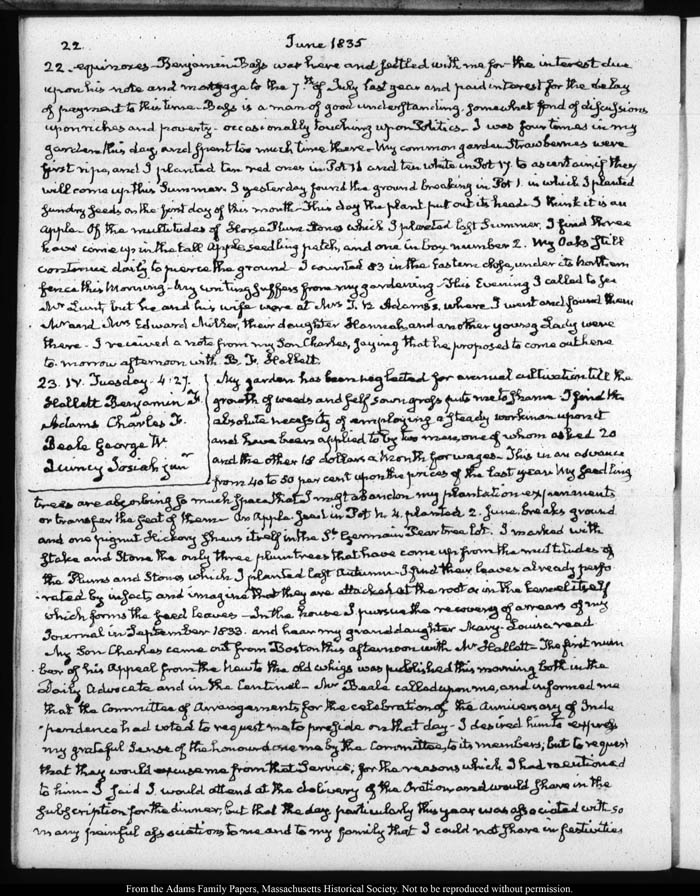 22. June 1835
22. equinoxes. Benjamin Bass was here and settled with me for the interest due
upon his note and mortgage to the 7.th of July last year and paid interest for the delay
of payment to this time. Bass is a man of good understanding, somewhat fond of discussions
upon riches and poverty - occasionally touching upon Politics. I was four times in my
garden this day, and spent too much time there. My common garden Strawberries were
first ripe, and I planted ten red ones in Pot 11 and ten white in Pot 17. to ascertain if they
will come up this Summer. I yesterday found the ground breaking in Pot 1. in which I planted
sundry seeds on the first day of this month. This day the plant put out its head. I think it is an
apple. Of the multitudes of Horse Plum Stones which I planted last Summer, I find three
have come up in the tall Apple seedling patch, and one in box number 2. My Oaks still
continue daily to pierce the ground I counted 83 in the Eastern close, under its northern
fence this Morning. My writing suffers from my gardening. This Evening I called to see
Mr Lunt, but he and his wife were at Mrs T. B. Adams's, where I went and found them
Mr and Mrs Edward Miller, their daughter Hannah, and another young Lady were
there. I received a note from my Son Charles, saying that he proposed to come out here
to-morrow afternoon with B. F. Hallett.
23. IV. Tuesday. 4:27.
Hallett Benjamin F.
Adams Charles F.
Beale George W.
Quincy Josiah junr
My garden has been neglected for annual cultivation till the
growth of weeds and self sown grass puts me to shame. I find the
absolute necessity of employing a steady workman upon it
and have been applied to by two men, one of whom asked 20
and the other 18 dollars a Month for wages. This is an advance
from 40 to 50 per cent upon the prices of the last year. My seedling
trees are absorbing so much space that I must abandon my plantation experiments
or transfer the seat of them. An Apple seed in Pot N. 4. planted 2. June. breaks ground
and one pignut Hickory shews itself in the St Germain Pear tree lot. I marked with
stake and Stone the only three plum trees that have come up from the multitudes of
the Plums and Stones which I planted last Autumn. I find their leaves already perfo-
-rated by insects, and imagine that they are attacked at the root or in the kernel itself
which forms the seed leaves - In the house I pursue the recovery of arrears of my
Journal in September 1833. and hear my granddaughter Mary-Louisa read
My Son Charles came out from Boston this afternoon with Mr Hallett. The first num-
-ber of his Appeal from the new to the old whigs was published this morning both in the
Daily Advocate and in the Centinel. Mr Beale called upon me, and informed me
that the Committee of Arrangements for the celebration of the Anniversary of Inde-
-pendence had voted to request me to preside on that day. I desired him to express
my grateful sense of the honour done me by the Committee, to its members; but to request
that they would excuse me from that Service; for the reasons which I had mentioned
to him. I said I would attend at the delivery of the Oration, and would share in the
subscription for the dinner; but that the day, particularly this year was associated with so
many painful associations to me and to my family that I could not share in festivities
From the Adams Family Papers, Massachusetts Historical Society. Not to be reproduced without permission.